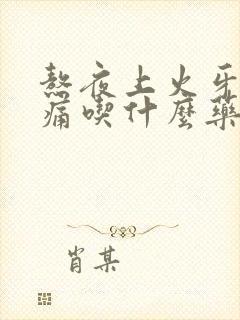 熬夜上火牙
痛喫什麼藥
肖某